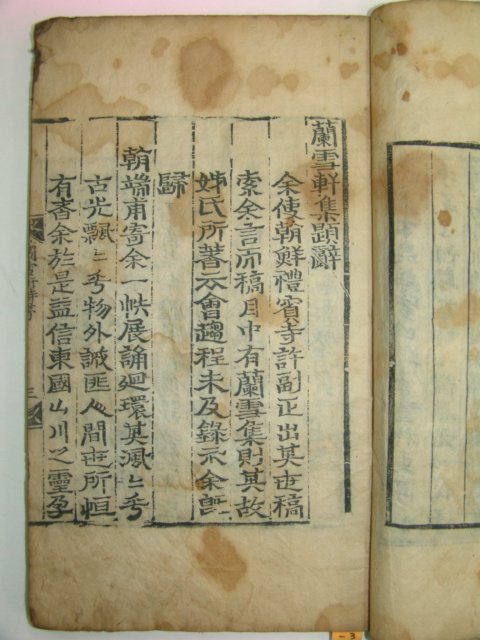 蘭雪軒集題辭
余使朝鮮禮賓寺許副正出其世稿
索余言而稿目中有蘭雪集則其故
姊氏所著不會趨程未及錄示余旣
歸
朝端甫寄余一帙展誦廻環其渢〻乎
古光飄〻乎物外誠匪人間世所恒
有者余於是益信東國山川之靈孕
三
－3